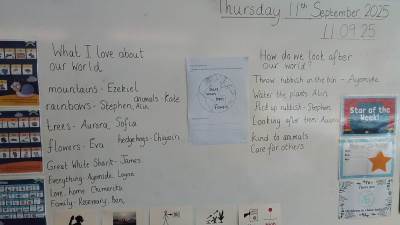 Thursday 11th September 2025
11.09.25
What I love about
our world
mountains - Ezekiel
animals - Kate
rainbows - Stephen, Alin
trees - Aurora, Sofia
hedgehogs -
flowers - Eva
Great White Shark - James
Everything - Ayomide, Logan
Love, home
Family - Rosemary, Ben,
How do we look after
our world?
Throw rubbish in the bin - Ayomide
Water the plants Alin
Pick up rubbish - Stephen
Looking after trees - Aurora
Kind to animals
Care for others
Star of the
Week!